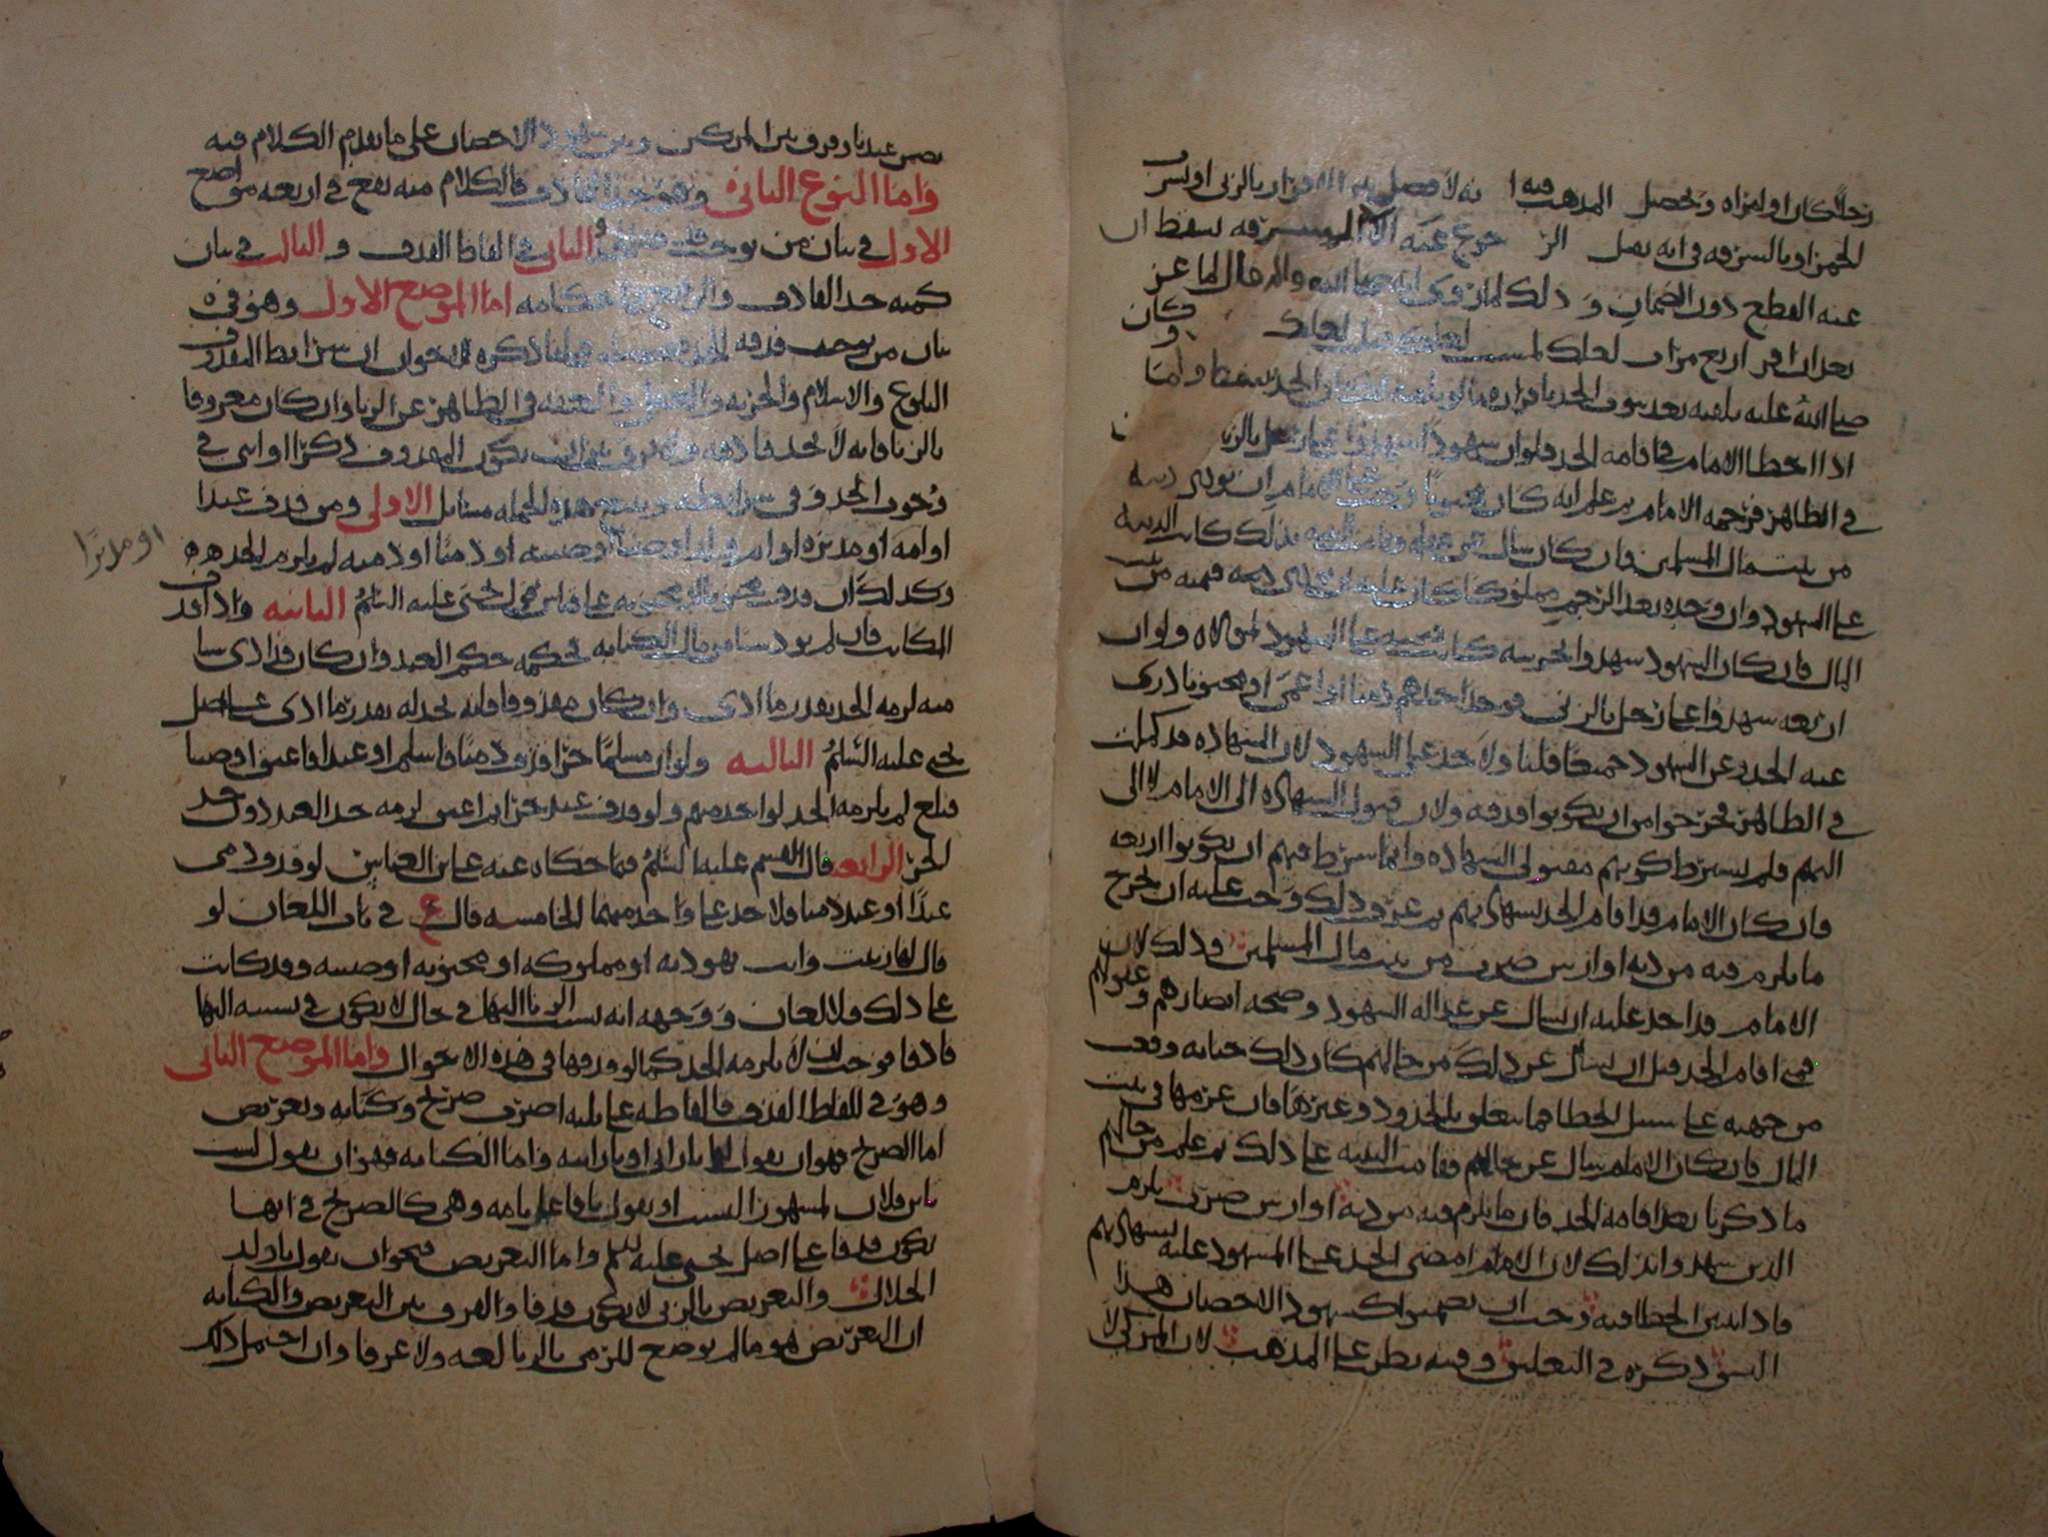 رجلا كان او امراه وتحصيل المذهب فيه انه لا فصل بين الاقرار بالزنى او شرب
الخمر او بالسرقه في انه يصل الرجوع عنه الا السرقه يسقط
عنه القطع دون الضمان وذلك لما روي انه صلى الله عليه واله قال لماعز
بعد ان اقر اربع مرات لعلك لمست لعلك قبلت لعلك وكان
صلى الله عليه يلقنه بعد ثبوت الحد باقراره الحد يسقط واما
اذا اخطا الامام في اقامه الحد فلو ان شهودا شهدوا على رجل بالزنا
في الظاهر فرجمه الامام ثم علم انه كان مجبوبا وجب على الامام ان يودي ديته
من بيت مال المسلمين فان كان سال عن عقله وقامت البينه بذلك كانت الديه
على الشهود وان وجده بعد الرجم مملوكا كان عليه ان يودي قيمته من بيت
المال فان كان الشهود شهدوا بحريته كانت قيمته على الشهود لمولاه ولو ان
اربعه شهدوا على رجل بالزنى فوجد احدهم ذميا او اعمى او مجنونا درى
عنه الحد وعن الشهود جميعا قلنا ولا حد على الشهود لان الشهاده قد كملت
في الظاهر فخرجوا من ان يكونوا قذفه ولان قبول الشهاده الى الامام لا الى
اليهم فلم يشترط كونهم مقبولي الشهاده وانما شرط فيهم ان يكونوا اربعه
فان كان الامام قد اقام الحد بشهادتهم ثم عرف ذلك وجب عليه ان يخرج
ما يلزم فيه من ديه او ارش ضرب من بيت مال المسلمين وذلك لان
الامام قد اخذ عليه ان يسال عن عداله الشهود وصحه ابصارهم وعقولهم
فمتى اقام الحد قبل ان يسال عن ذلك من حالهم كان ذلك جنايه وقعت
من جهته على سبيل الخطا فما يتعلق بالحدود وغيرها فان غرمها في بيت
المال فان كان الامام سال عن حالهم فقامت البينه على ذلك ثم علم من حالهم
ما ذكرنا بعد اقامه الحد فان ما يلزم فيه من ديه او ارش ضرب يلزم
الذين شهدوا بذلك لان الامام امضى الحد على المشهود عليه بشهادتهم
فاذا تبين الخطا فيه وجب ان يضمنوا كشهود الاحصان هذا
الشق ذكره في التعليق وفيه نظر على المذهب لان المزكي لا
يضمن عندنا وفرق بين المزكين وبين شهود الاحصان على ما تقدم الكلام فيه
واما النوع الثاني وهو حد القاذف فالكلام منه يقع في اربعه مواضع
الاول في بيان من يوجب قذفه والثاني في الفاظ القذف والثالث في بيان
كميه حد القاذف والرابع في احكامه اما الموضع الاول وهو في
بيان من يوجب قذفه الحد فجمله ما ذكره الاخوان ان شرائط المقذوف
البلوغ والاسلام والحريه والعقل والعفه في الظاهر عن الزنا وان كان معروفا
بالزنا فانه لا يحد قاذفه ولا فرق بين ان يكون المقذوف ذكرا او انثى في
وجوب الحد وفي شرائطه ويتبع هذه الجمله مسايل الاولى ومن قذف عبدا
او امه او مدبره او ام ولد او صبيا او صبيه او ذميا او ذميه لم يلزم الحد
او مدبرا
وكذلك ان قذف مجنونا او مجنونه على قياس قول يحيى عليه السلم الثانيه واذا قذف
المكاتب فان لم يود شيا من مال الكتابه فحكمه حكم العبد وان كان قد ادى شيا
منه لزمه الحد بقدر ما ادى وان كان مقذوفا فانه يحد له بقدر ما ادى على اصل
يحيى عليه السلم الثالثه ولو ان مسلما حرا قذف ذميا فاسلم او عبدا فاعتق او صبيا
فبلغ لم يلزمه الحد لواحد منهم ولو قذف عبد حرا ثم اعتق لزمه حد العبد دون حد
الحر الرابعه قال القسم عليه السلم فيما حكاه عنه على بن العباس لو قذف ذمي
عبدا او عبد ذميا فلا حد على واحد منهما الخامسه قال ع في باب اللعان لو
قال لها زنيت وانت يهوديه او مملوكه او مجنونه او صبيه وقد كانت
على ذلك فلا لعان ووجهه انه نسب الزنا اليها في حال لا يكون في نسبته اليها
قاذفا فوجب ان لا يلزمه الحد كما لو قذفها في هذه الاحوال واما الموضع الثاني
وهو في الفاظ القذف فالفاظه على ثلثه اضرب صريح وكنايه وتعريض
اما الصريح فهو ان يقول لها يا زاني او يا زانيه واما الكنايه فهو ان يقول لست
بابن فلان لمشهور النسب او يقول يا فاعل بامه وهي كالصريح في انها
تكون قذفا على اصل يحيى عليه السلم واما التعريض فنحو ان يقول يا ولد
الحلال والتعريض بالزنى لا يكون قذفا والفرق بين التعريض والكنايه
ان التعريض هو ما لم يوضع للرمي بالزنا لغه ولا عرفا وان احتمل ذلك